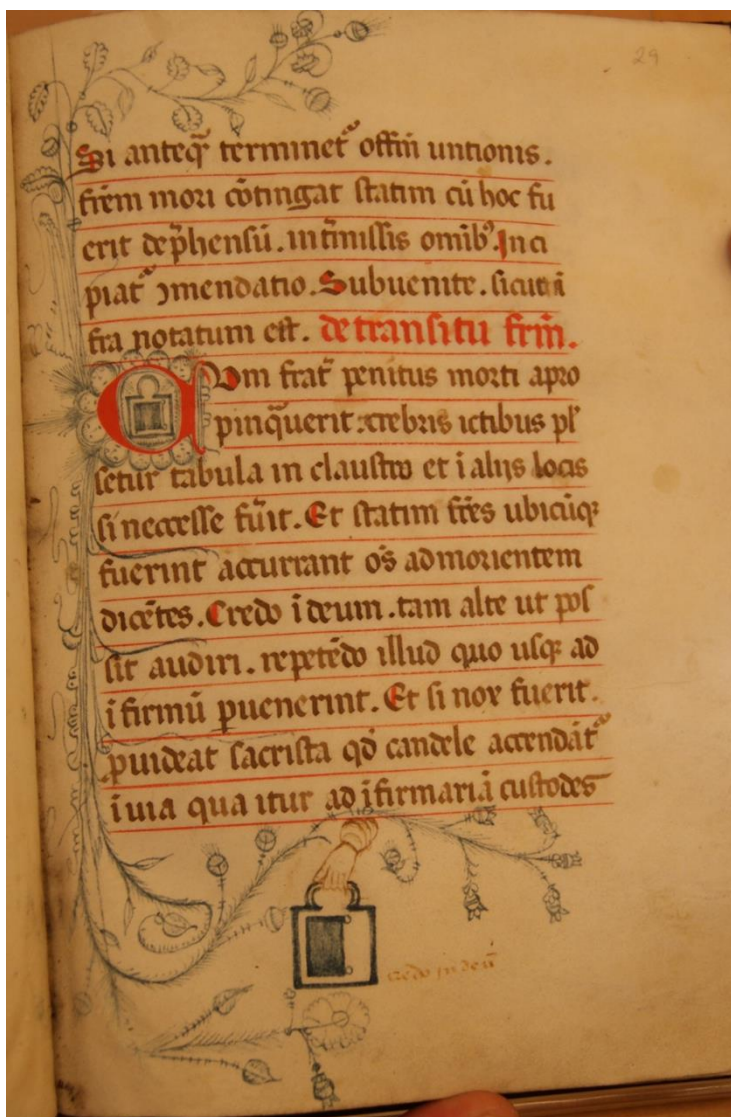 29
Si anteqꝫ terminet᷑ offm̄ untionis.
frēm mori cōtingat statim cū hoc fu
erit dep̄hensū. int̄missis omībꝰ. Inci
piat᷑ ꝯmendatio. Subuenite. sicut ī
fra notatum est. de transitu frm̄.
Cum frat᷑ penitus morti apro
pinqᷓuerit: crebris ictibus pl᷑
setur tabula in claustro et ī alijs locis
si neccesse fūit. Et statim fr̄es ubicūqꝫ
fuerint accurrant os̄ ad morientem
dicētes. Credo ī deum. tam alte ut pos
sit audiri. repetēdo illud quo usqꝫ ad
ī firmū ꝑuenerint. Et si nox fuerit.
ꝓuideat sacrista qd̄ candele accendāt᷑
ī uia qua itur ad īfirmariā custodes
credo in deū